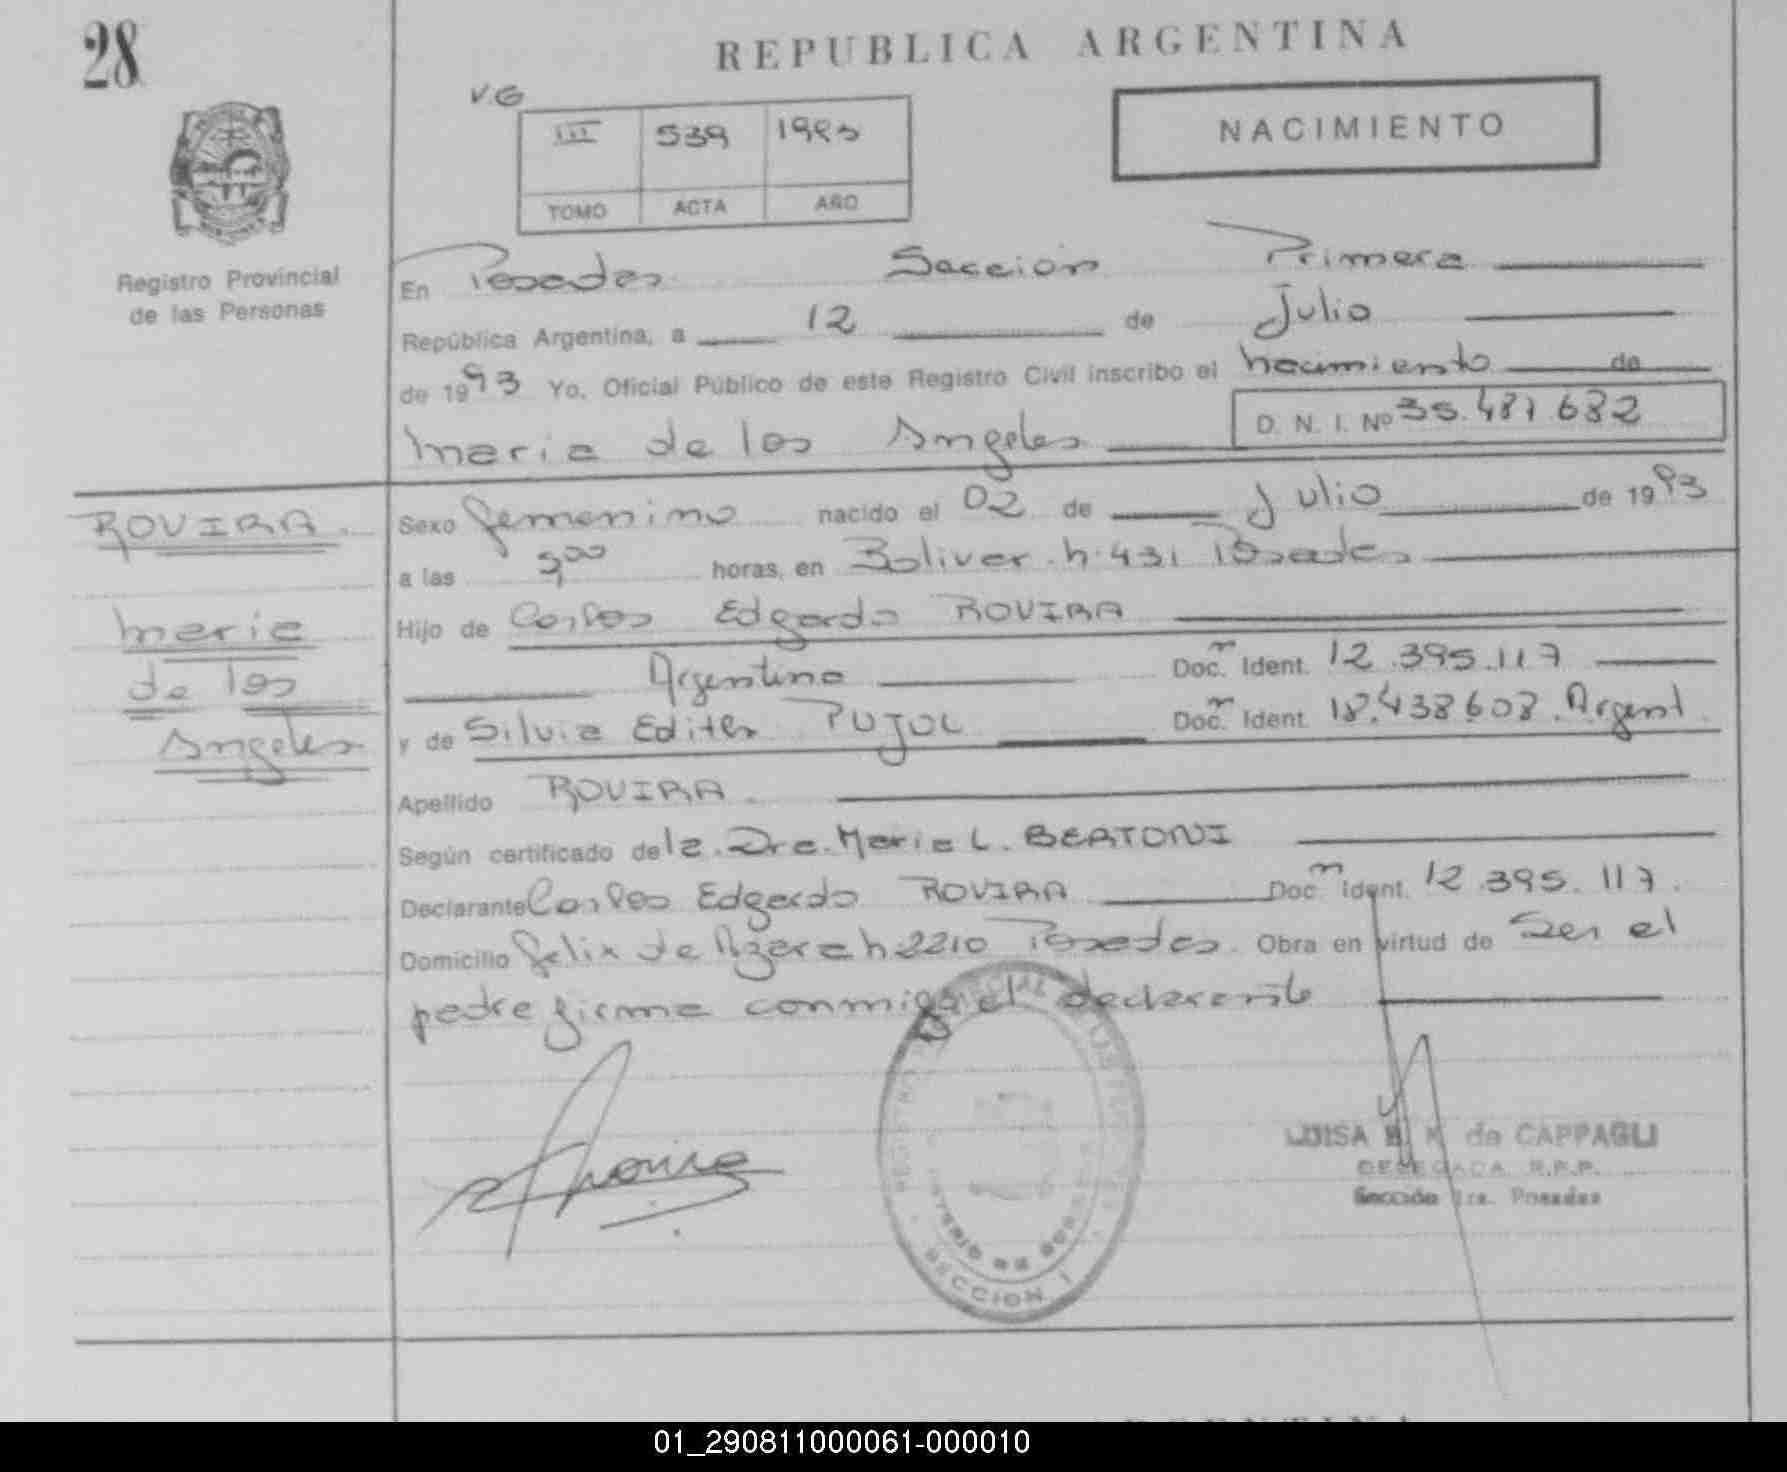 28
REPUBLICA ARGENTINA
V.G
III 539 1993
TOMO ACTA AÑO
NACIMIENTO
Registro Provincial
de las Personas
En Posadas Sección Primera
República Argentina, a 12 de Julio
de 1993 Yo, Oficial Público de este Registro Civil inscribo el nacimiento de
Maria de los Angeles D. N. I. Nº 35.487.682
ROVIRA
Maria
de los
Angeles
Sexo femenino nacido el 02 de Julio de 1993
a las horas, en Bolivar n. 431 Posadas
Hijo de Carlos Edgardo ROVIRA
Argentino Doc. Ident. 12.395.117
y de Silvia Edith PUJOL Doc. Ident. 18.438.608. Argent.
Apellido ROVIRA
Según certificado de la Dra. Maria L. BERTONI
Declarante Carlos Edgardo ROVIRA Doc. Ident. 12.395.117.
Domicilio felix de Azara n 2210 Posadas. Obra en virtud de Ser el
padre firma conmigo el declarante
LUISA de CAPPAGLI
DELEGADA R.P.P.
Sección 1ra. Posadas
SECCION 1
01_290811000061-000010